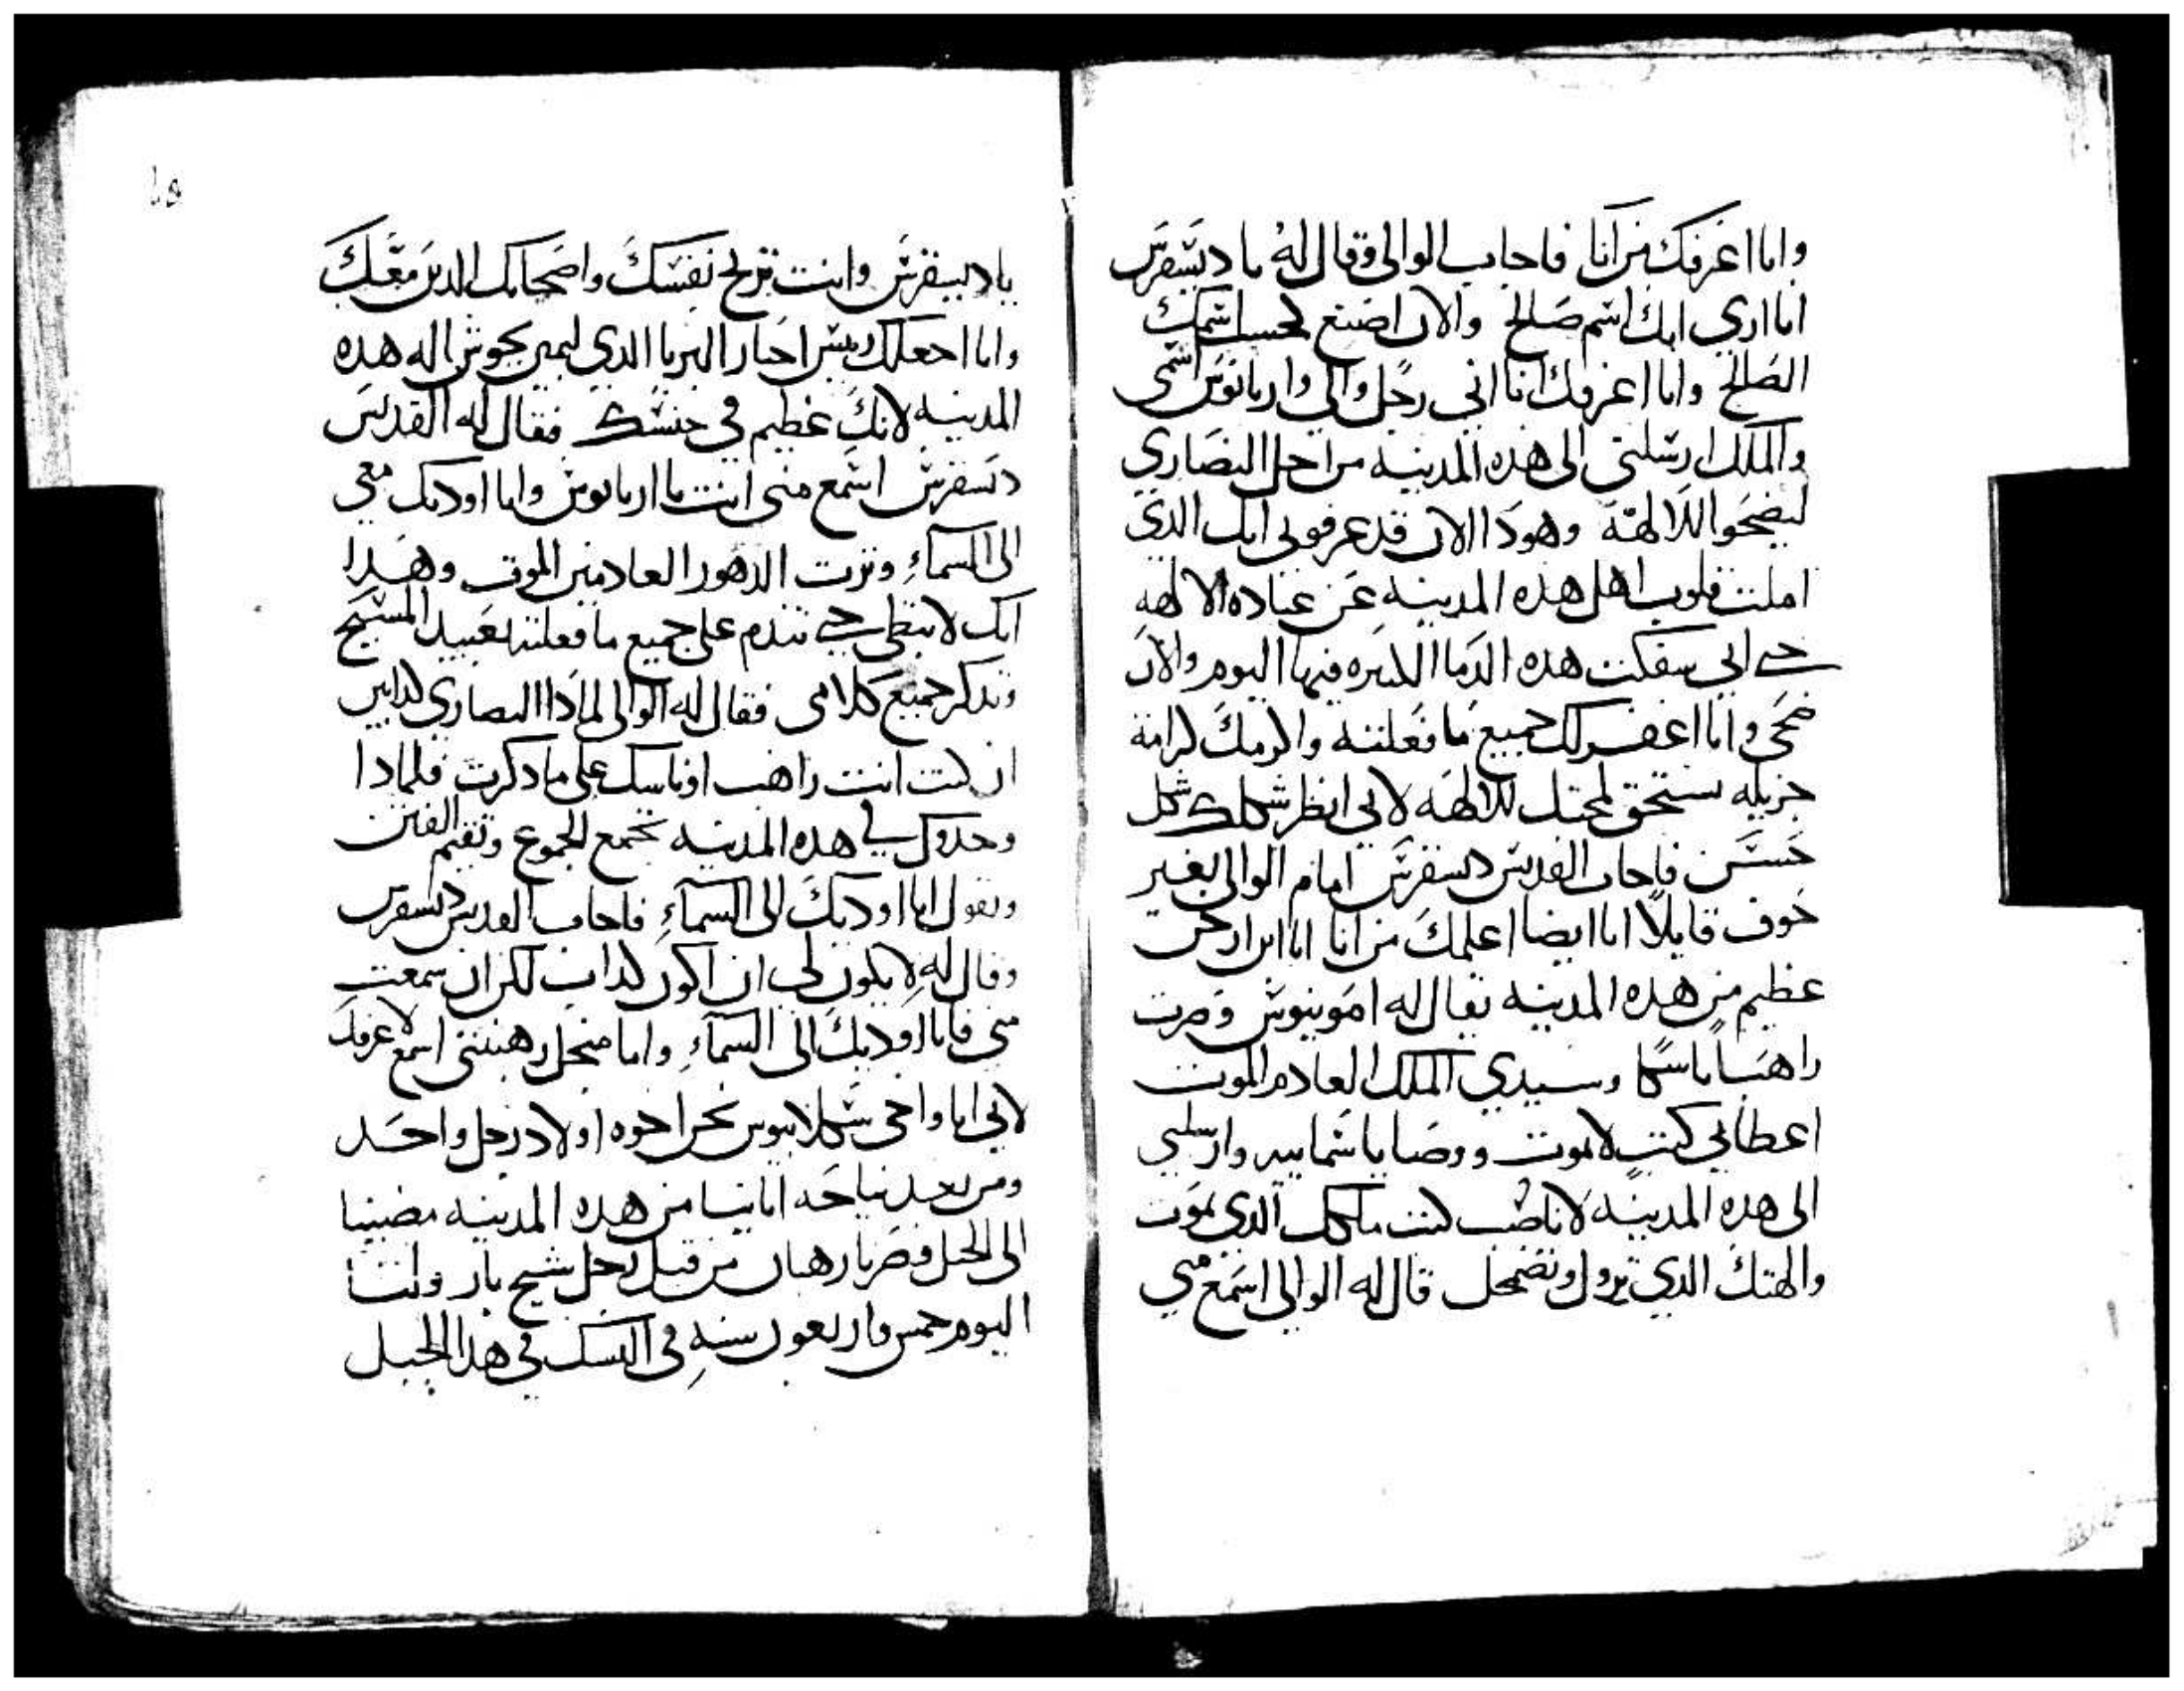 وانا اعرفك من انا فاجاب الوالي وقال له يا ديسقرس
انا اري انك اسم صالح والان اصنع لحسب اسمك
الصالح وانا اعرفك انا اني رجل والي واريانوس اسمي
والملك ارسلني الى هده المدينه من اجل النصاري
ليضحوا للالهة وهودا الان قد عرفوني انك الدي
املت قلوب اهل هده المدينه عن عباده الالهه
حتى اني سفكت هده الدما الكتيره فيها اليوم والان
ضحي وانا اغفر لك جميع ما فعلته واكرمك كرامة
جزيله تستحق لمحبتك للالهه لاني انظر شكلك شكل
حسن فاجاب القديس ديسقرس امام الوالي بغير
خوف قايلا انا ايضا اعلمك من انا انا ابن ارخن
عظيم من هده المدينه يقال له امونيوس وصرت
راهبا ناسكا وسيدي الملك العادم الموت
اعطاني كتب لا تموت ووصايا سماييه وارسلني
الى هده المدينه لاناصب كتب ملكك الدي يموت
والهتك الدي تزول وتضمحل قال له الوالي اسمع مني
٥١
يا ديسقرس وانت تربح نفسك واصحابك الدين معك
وانا اجعلك ريس احبار البربا الدي اله هده
المدينه لانك عظيم في جنسك فقال له القديس
ديسقرس اسمع مني انت يا اريانوس وانا اوديك معي
الى السماء وترت الدهور العادمين الموت وهدا
انك لا تبطي حتى تندم على جميع ما فعلته بعبيد المسيح
وتدكر جميع كلامي فقال له الوالي لمادا النصاري كدابين
ان كنت انت راهب او ناسك على ما دكرت فلمادا
في هده المدينه تجمع الجموع وتقيم الفتن
وتقول انا اوديك الى السماء فاجاب القديس ديسقرس
وقال له لا يكون لي ان اكون كداب لكن ان سمعت
مني فانا اوديك الى السماء واما من اجل رهبنتي اسمع لاعرفك
لاني انا واخي سكلابيوس نحن اخوه اولاد رجل واحد
ومن بعد نياحة ابانا من هده المدينه مضينا
الى الجبل وصرنا رهبان من قبل رجل شيخ بار ولنا
اليوم خمس واربعون سنه في النسك في هدا الجبل